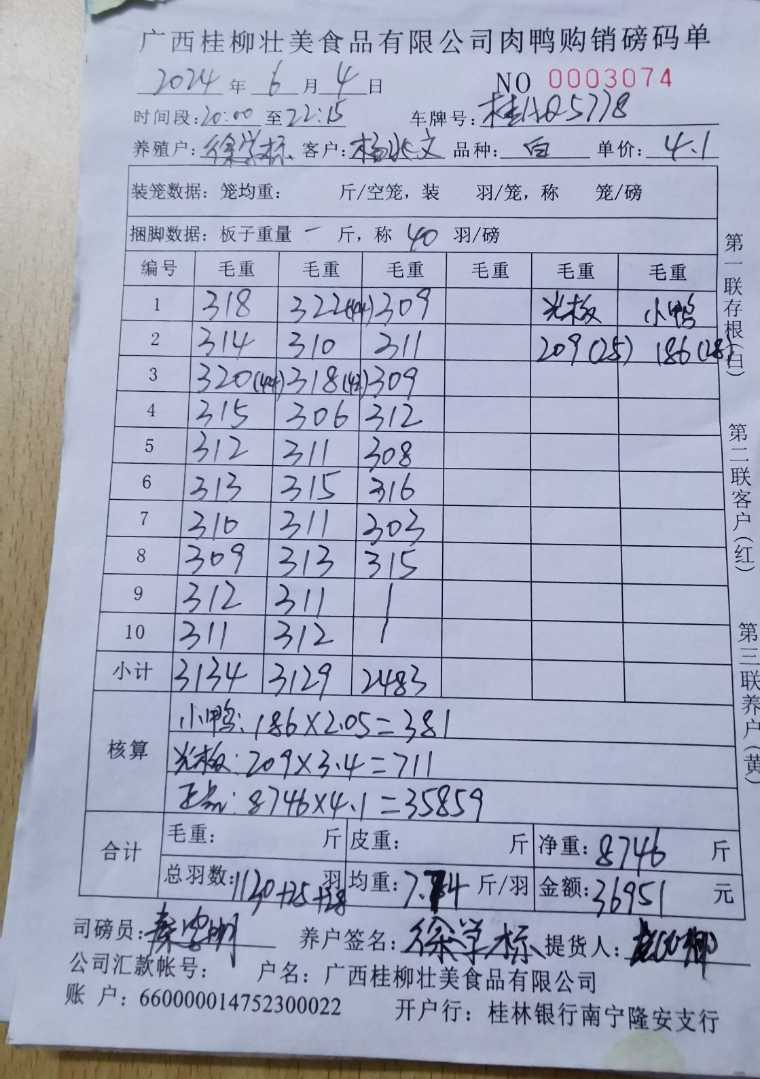 广西桂柳壮美食品有限公司肉鸭购销磅码单
2024 年 6 月 4 日 NO 0003074
时间段:20:00 至 22:15 车牌号: 5778
养殖户: 徐学标 客户: 杨 文 品种: 白 单价: 4.1
装笼数据: 笼均重: 斤/空笼, 装 羽/笼, 称 笼/磅
捆脚数据: 板子重量 一 斤, 称 40 羽/磅
编号 毛重 毛重 毛重 毛重 毛重 毛重
1 318 322(44) 309 光板 小鸭
2 314 310 311 209(25) 186(28)
3 320(44) 318(42) 309
4 315 306 312
5 312 311 308
6 313 315 316
7 310 311 303
8 309 313 315
9 312 311 /
10 311 312 /
小计 3134 3129 2483
核算 小鸭: 186×2.05=381
光板: 209×3.4=711
正品: 8746×4.1=35859
合计 毛重: 斤 皮重: 斤 净重: 8746 斤
总羽数: 1130+25+28 羽 均重: 7.74 斤/羽 金额: 36951 元
司磅员: 养户签名: 徐学标 提货人:
公司汇款帐号: 户名: 广西桂柳壮美食品有限公司
账 户: 660000014752300022 开户行: 桂林银行南宁隆安支行
第一联存根(白)
第二联客户(红)
第三联养户(黄)